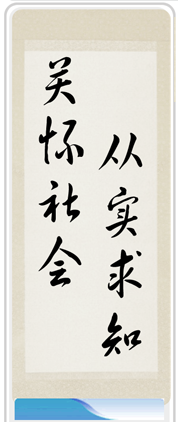 从实求知
关怀社会